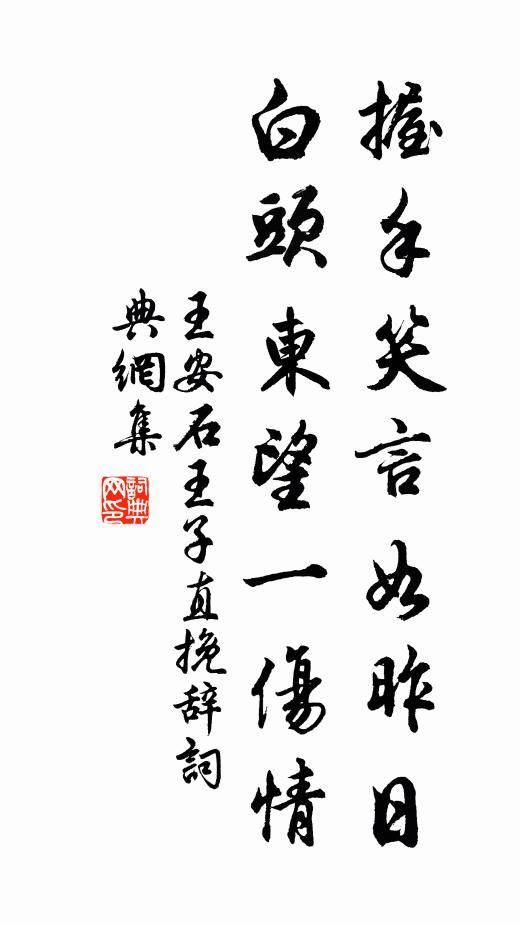 握手笑言如昨日
白頭東望一傷情
王安石王子直挽辞詞
典網集
詞典网印